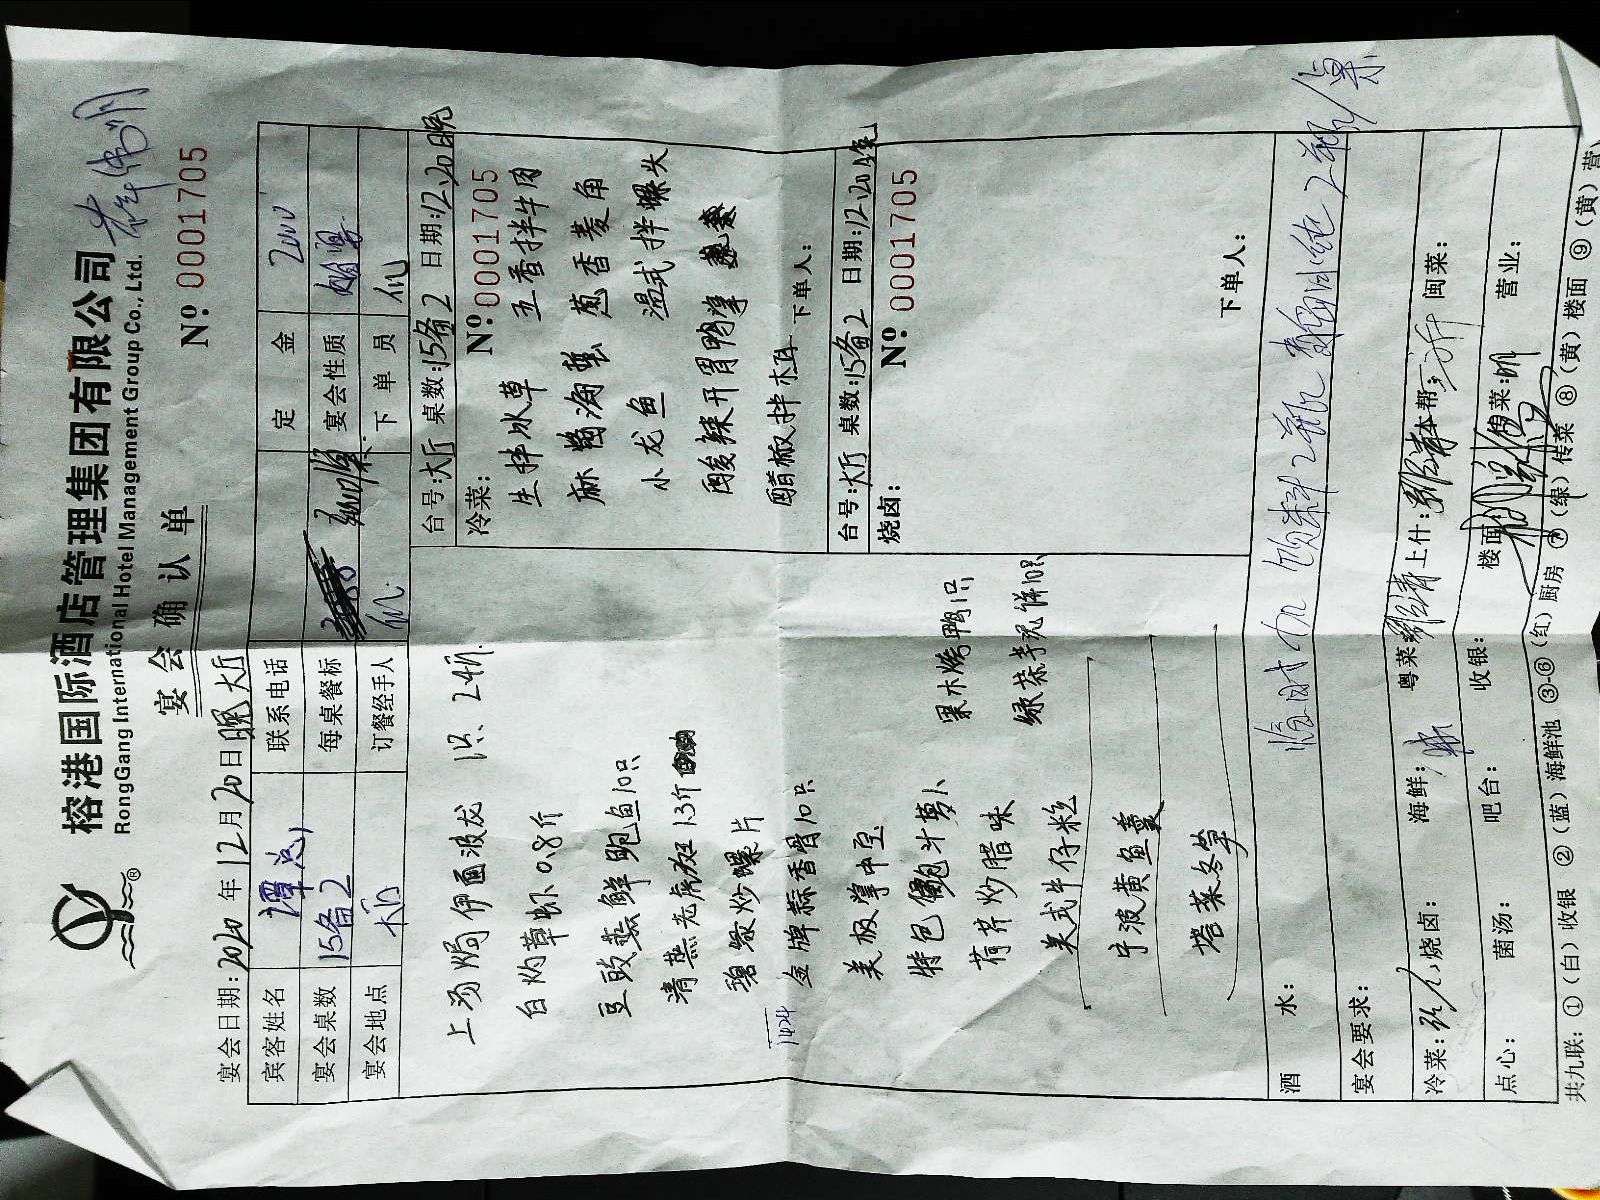 榕港国际酒店管理集团有限公司
RongGang International Hotel Management Group Co., Ltd.
宴会确认单
№ 0001705
宴会日期: 2020 年 12 月 20 日 晚 大厅
宾客姓名 谭总 联系电话 定金 2000
宴会桌数 15备2 每桌餐标 宴会性质
宴会地点 订餐经手人 下单员
上汤焗伊面波龙 1只 2.4斤
白灼草虾0.8斤
豆豉蒸鲜鲍鱼10只
清蒸老虎斑1.3斤
碧绿炒螺片
金牌蒜香骨10只
美极掌中宝
特包鲍斗萝卜
荷芹炒腊味
美式牛仔粒
宁波黄鱼羹
塔菜冬笋
果木烤鸭1只
绿茶芋兜饼10只
台号: 大厅 桌数: 15备2 日期: 12.20晚
冷菜:
№ 0001705
生拌冰草 五香拌牛肉
麻酱海蜇 葱香菱角
小龙鱼 温式拌螺头
酸辣开胃鸭掌
醋椒拌木耳
下单人:
台号: 大厅 桌数: 15备2 日期: 12.20晚
烧卤:
№ 0001705
下单人:
酒水:
宴会要求:
冷菜: 烧卤: 海鲜: 粤菜: 上什: 本帮: 闽菜:
点心: 菌汤: 吧台: 收银: 楼面: 传菜: 营业:
共九联: ①(白)收银 ②(蓝)海鲜池 ③-⑥(红)厨房 ⑦(绿)传菜 ⑧(黄)楼面 ⑨(黄)营